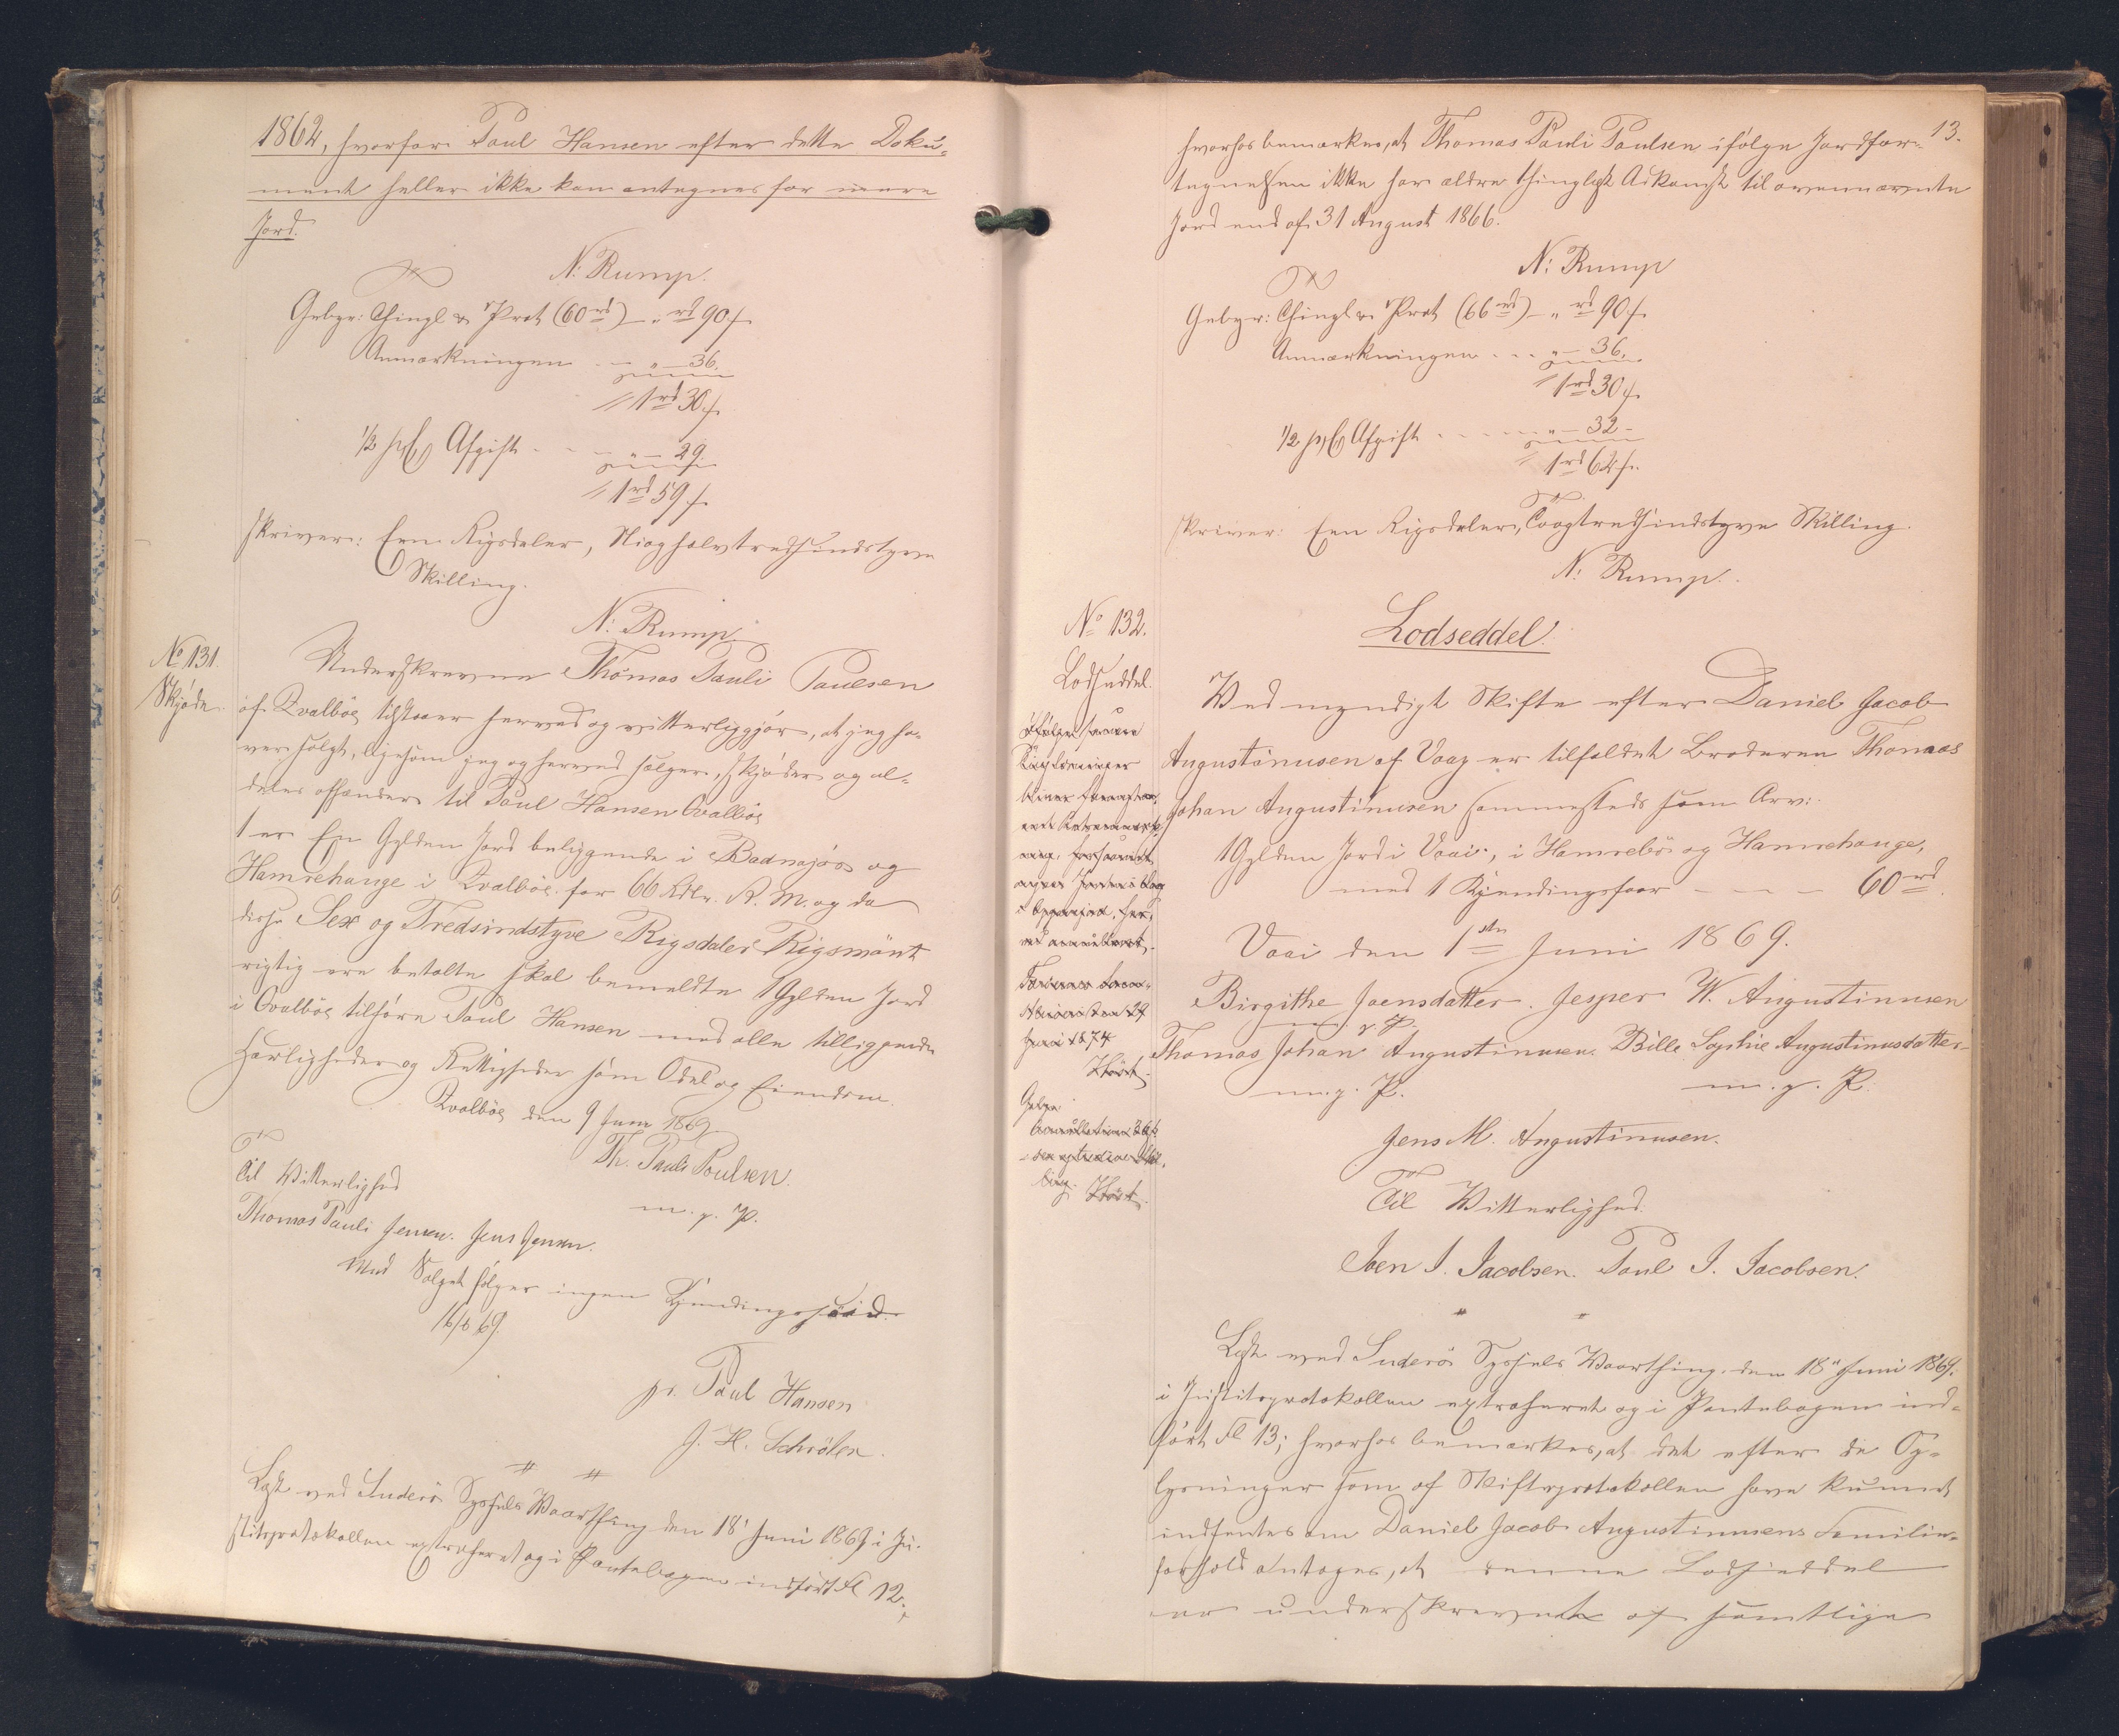 1862, hvorfor Poul Hansen efter dette Doku-
ment heller ikke kan antegnes for mere
Jord.
N: Rump.
Gebyr: Thingl & Prot (60 rd) - " rd 90 s.
Anmærkningen - " - 36.
1 rd 30 s.
1/2 pC Afgift - - - " - 29.
1 rd 59 s.
skriver: Een Rigsdaler, Nioghalvtredsindstyve
Skilling.
N: Rump.
No 131.
Skjöde.
Underskrevne Thomas Pauli Paulsen
af Qvalböe tilstaaer herved og vitterliggjör, at jeg ha-
ver solgt, ligesom jeg og herved sælger, skjöder og al-
deles afhænder til Poul Hansen Qvalböe
1 er En Gylden Jord beliggende i
Hamrehauge i Qvalböe for 66 Rdlr. R. M. og da
disse Sex og Tredsindstyve Rigsdaler Rigsmönt
rigtig ere betalte skal bemeldte 1 Gylden Jord
i Qvalböe tilhöre Poul Hansen med alle tilliggende
Herligheder og Rettigheder som Odel og Eiendom.
Qvalböe den 9 Juni 1869.
Th. Pauli Poulsen.
m. p. P.
Til Vitterlighed
Thomas Pauli Jensen. Jens Jensen.
Med Salget fölger ingen
16/6 69.
pr. Poul Hansen
J. H. Schröter.
" "
Læst ved Suderö Syssels Vaarthing den 18' Juni 1869 i Ju-
stitsprotokollen extraheret og i Pantebogen indfört Fl 12;
13.
hvorhos bemærkes, at Thomas Pauli Paulsen ifölge Jordfor-
tegnelsen ikke har ældre thinglyst Adkomst til ovennævnte
Jord end af 31 August 1866.
N: Rump
Gebyr: Thingl & Prot (66 rd) - " rd 90 s.
Anmærkningen . . . " - 36.
1 rd 30 s.
1/2 pC Afgift - - - - " - 32 -
1 rd 62 s.
skriver: Een Rigsdaler, Toogtredsindstyve Skilling.
N: Rump.
No 132.
Lodseddel.
Juni 1874
Lodseddel.
Ved myndigt Skifte efter Daniel Jacob
Augustinusen af Vaag er tilfaldet Broderen Thomas
Johan Augustinusen sammesteds som Arv:
1 Gylden Jord i Vaai, i Hamrebö og Hamrehauge,
med 1 Kjendingsfaar - - - 60 rd.
Vaai den 1ste Juni 1869.
Birgithe Joensdatter. Jesper W. Augustinusen
m. p. P.
Thomas Johan Augustinusen. Bille Sophie Augustinusdatter
m. p. P. m. p. P.
Jens M. Augustinusen.
Til Vitterlighed.
Joen J. Jacobsen. Poul J. Jacobsen.
" "
Læst ved Suderö Syssels Vaarthing den 18" Juni 1869,
i Justitsprotokollen extraheret og i Pantebogen ind-
fört Fl 13; hvorhos bemærkes, at det efter de Op-
lysninger som af Skifteprotokollen have kunnet
indhentes om Daniel Jacob Augustinusens Familie-
forhold antages, at denne Lodseddel
er underskrevet af samtlige